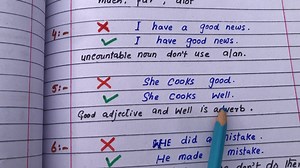 much, far, alot
4:- ✗ I have a good news.
✓ I have good news.
uncountable noun don't use a/an.
5:- ✗ She cooks good.
✓ She cooks well.
Good adjective and Well is adverb.
6:- ✗ HE did a mistake.
✓ He made mistake.
don't do the